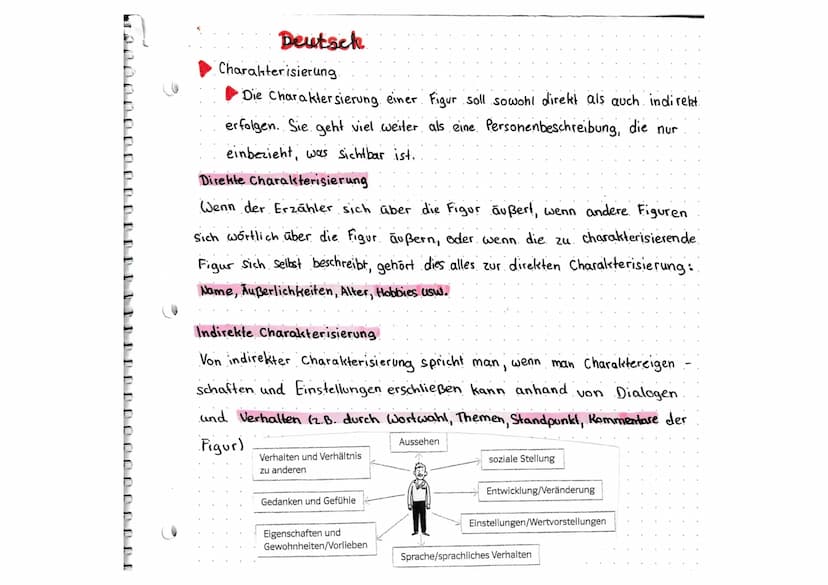 Deutsch
Charakterisierung
Die Charaktersierung einer Figur soll sowohl direkt als auch indirekt
erfolgen. Sie geht viel weiter als eine Personenbeschreibung, die nur
einbezieht, was sichtbar ist.
Direkte Charakterisierung
Wenn der Erzähler sich über die Figur äußert, wenn andere Figuren
sich wörtlich über die Figur äußern, oder wenn die zu charakterisierende
Figur sich selbst beschreibt, gehört dies alles zur direkten Charakterisierung:
Name, Äußerlichkeiten, Alter, Hobbies usw.
Indirekte Charakterisierung
Von indirekter Charakterisierung spricht man, wenn man Charaktereigen -
schaften und Einstellungen erschließen kann anhand von Dialogen
und Verhalten (z.B. durch Wortwahl, Themen, Standpunkt, Kommentare der
Figur)
Aussehen
Verhalten und Verhältnis
zu anderen
soziale Stellung
Gedanken und Gefühle
Entwicklung/Veränderung
Eigenschaften und
Gewohnheiten/Vorlieben
Einstellungen/Wertvorstellungen
Sprache/sprachliches Verhalten